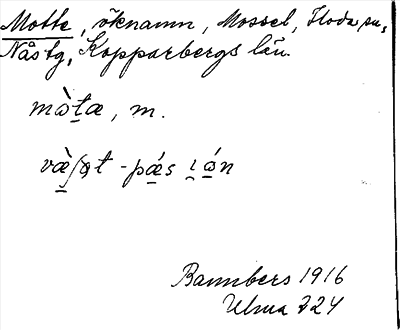 Motte, öknamn, Mossel, Floda sn,
Nås tg, Kopparbergs län.
mɷ̀tæ, m.
-pás
Bannbers 1916
Ulma 324